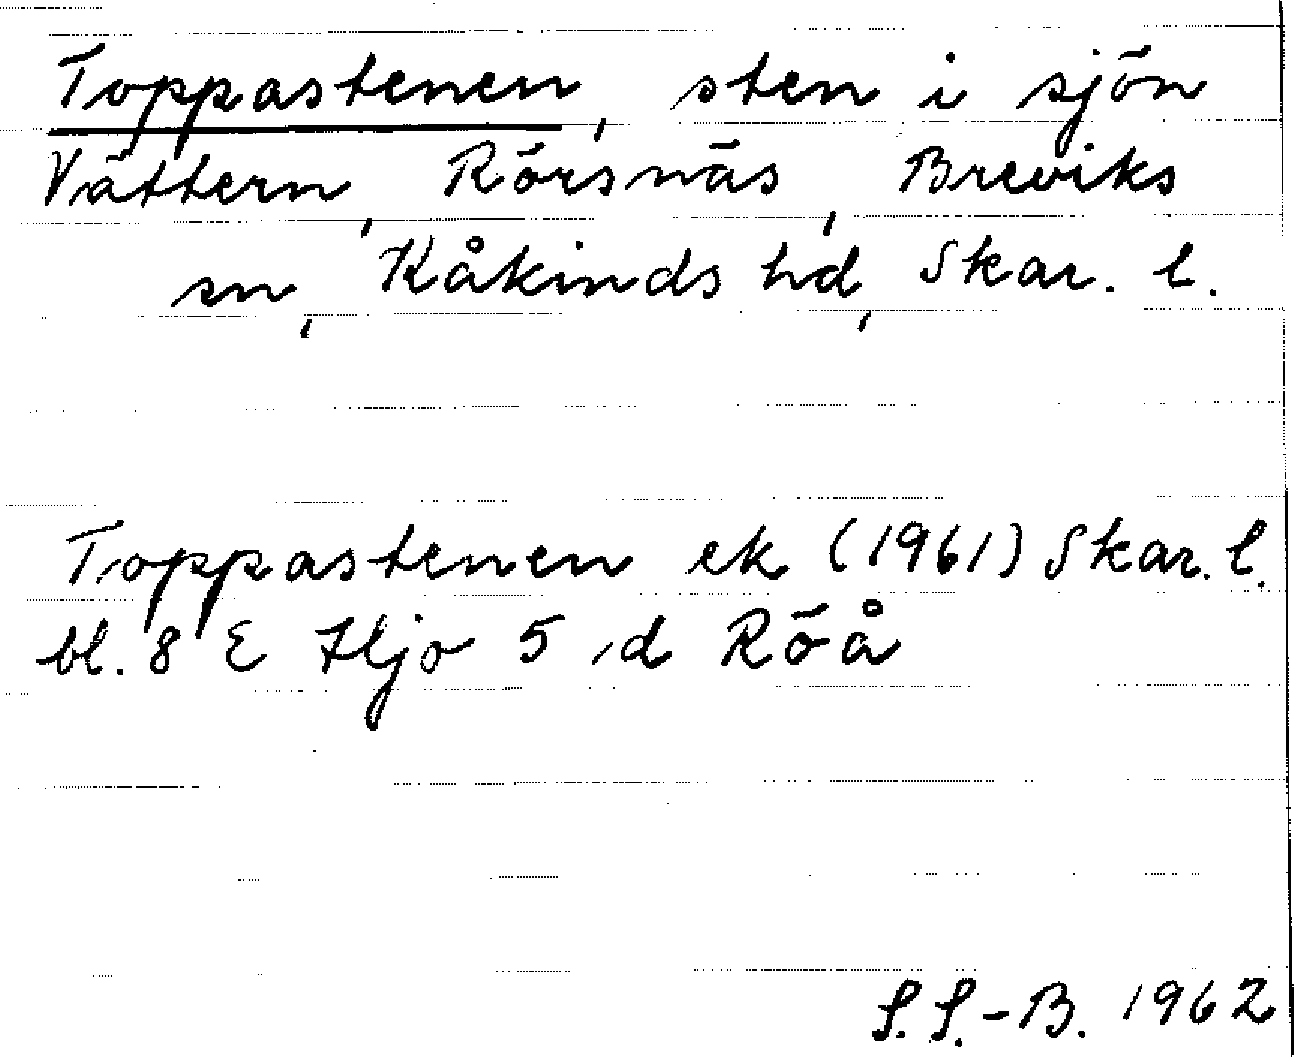 Toppastenen, sten i sjön
Vättern, Rörsnäs, Breviks
sn, Kåkinds hd, Skar. l.
Toppastenen ek (1961) Skar. l.
bl. 8 E Hjo 5 d Röå
S. S.-B. 1962